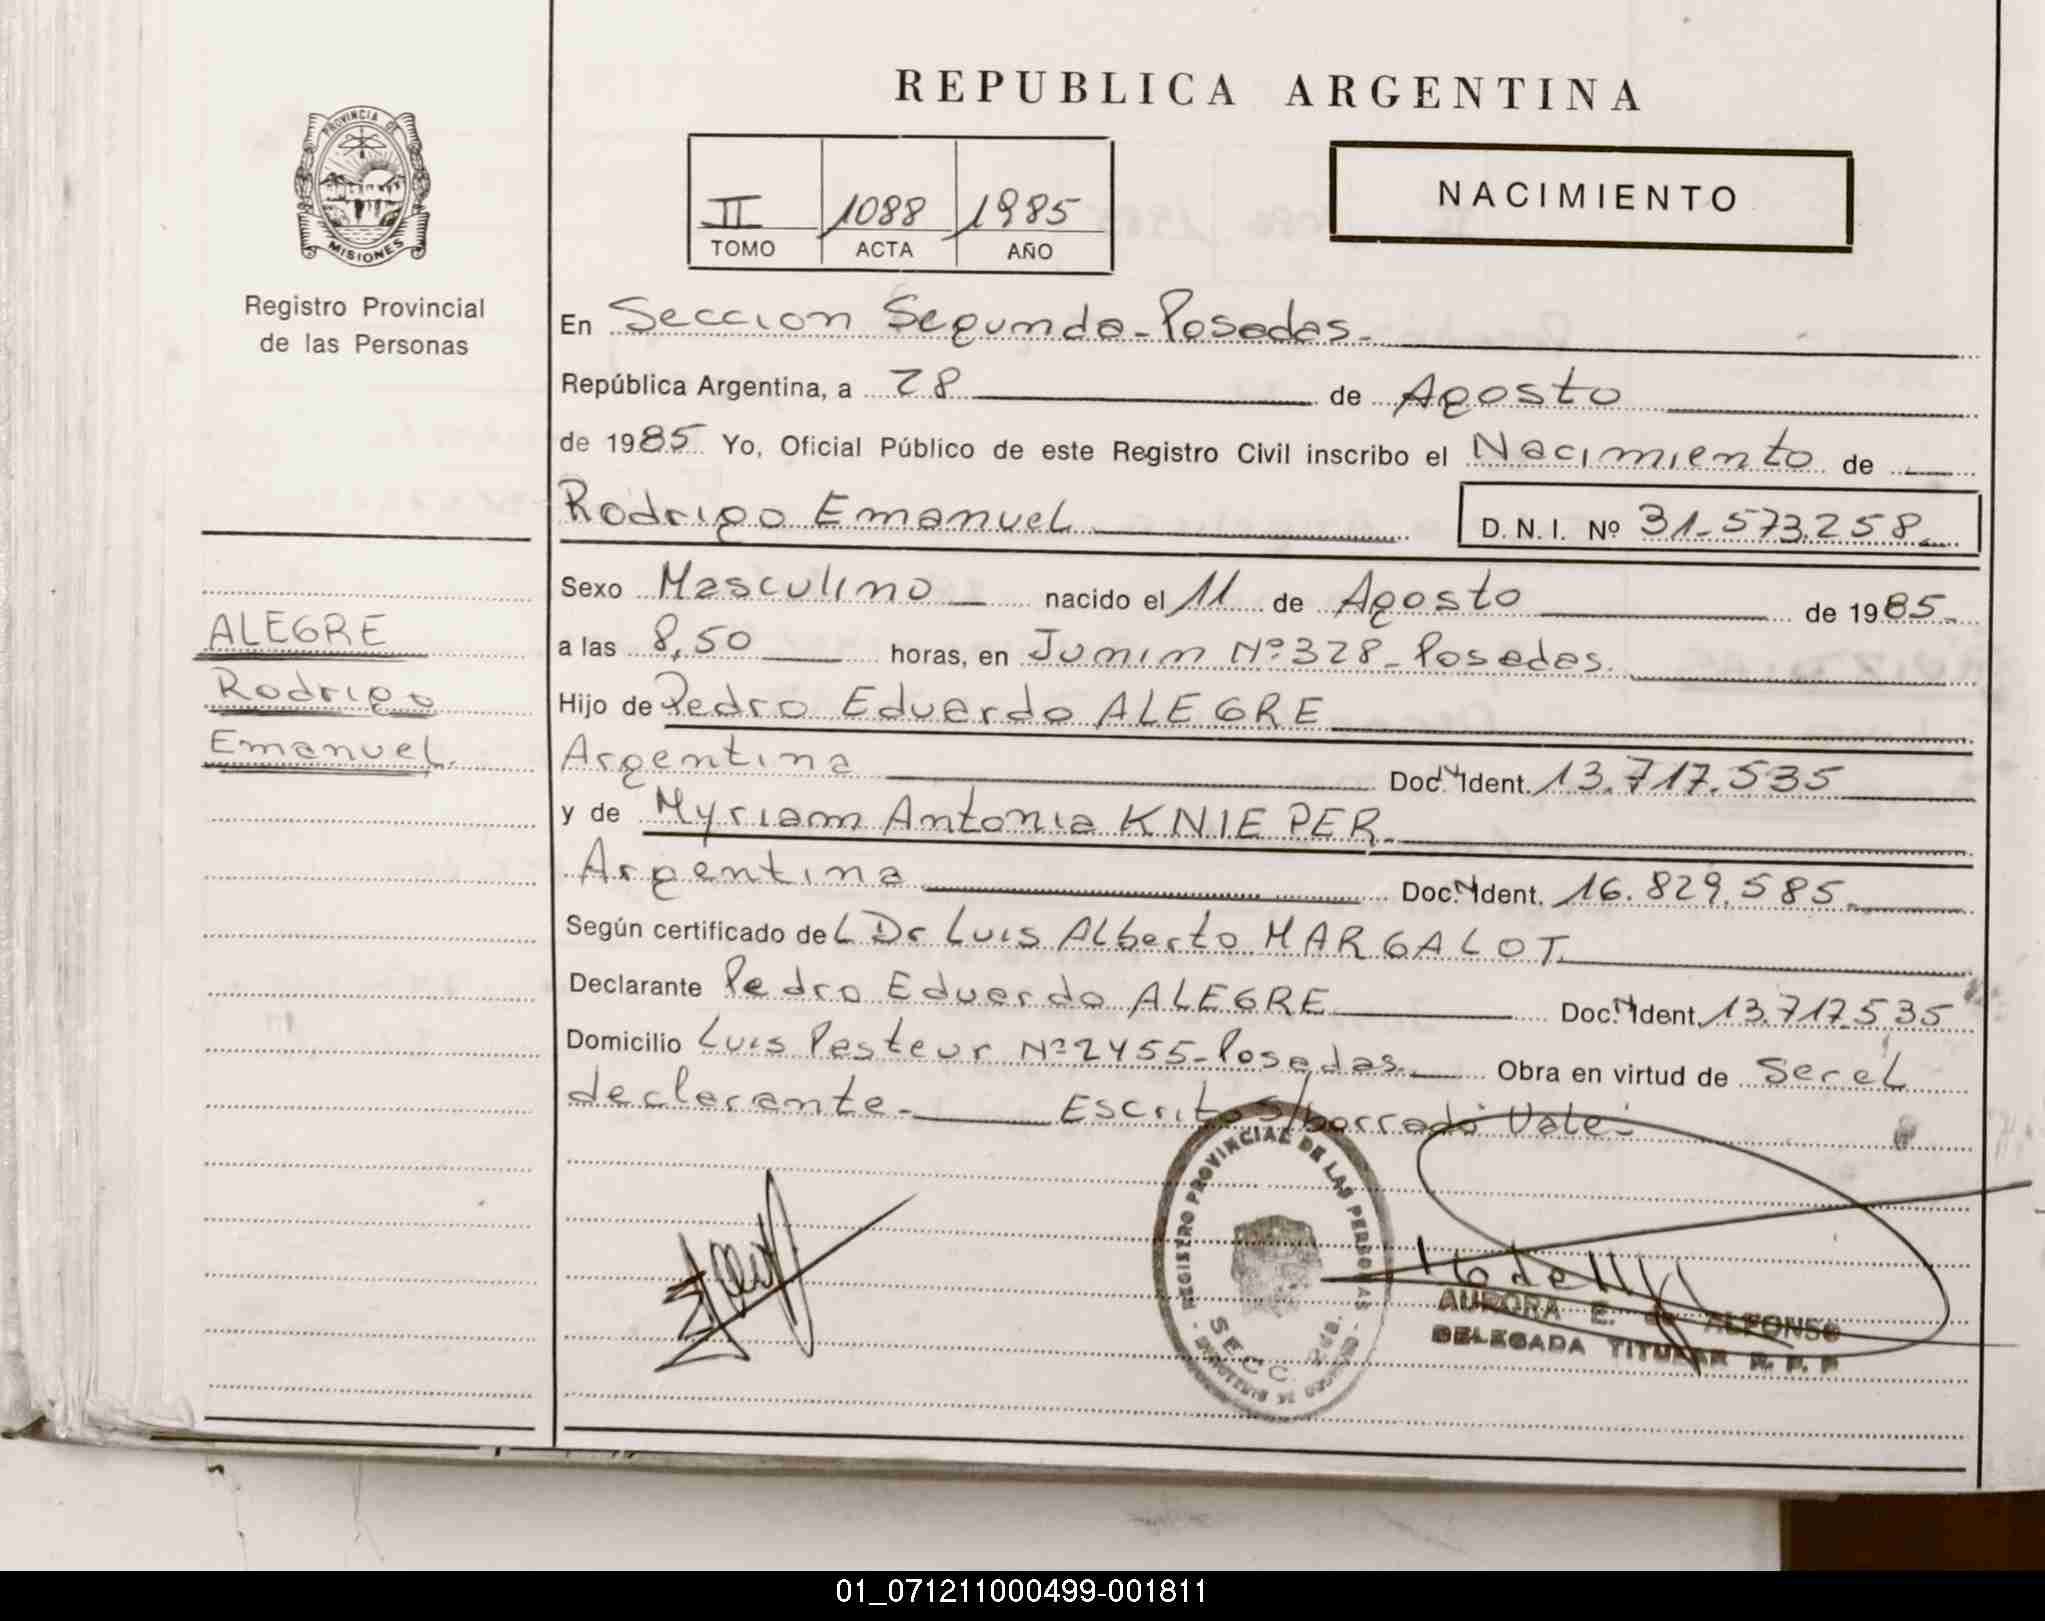 PROVINCIA DE
MISIONES
Registro Provincial
de las Personas
ALEGRE
Rodrigo
Emanuel.
REPUBLICA ARGENTINA
II 1088 1985
TOMO ACTA AÑO
NACIMIENTO
En Seccion Segunda-Posadas-
República Argentina, a 28 de Agosto
de 1985 Yo, Oficial Público de este Registro Civil inscribo el Nacimiento de
Rodrigo Emanuel D. N. I. Nº 31.573.258
Sexo Masculino nacido el 11 de Agosto de 1985
a las 8,50 horas, en Junin Nº 328-Posadas.
Hijo de Pedro Eduardo ALEGRE
Argentina Doc. N Ident. 13.717.535
y de Myriam Antonia KNIEPER
Argentina Doc. N Ident. 16.829.585
Según certificado del Dr Luis Alberto MARGALOT.
Declarante Pedro Eduardo ALEGRE Doc. N Ident. 13.717.535
Domicilio Luis Pasteur Nº 2455-Posadas Obra en virtud de Ser el
declarante- Escrito s/borrado: Vale-
REGISTRO PROVINCIAL DE LAS PERSONAS
SECC. 2da.
AURORA E. de ALFONSO
DELEGADA TITULAR R. P. P
01_071211000499-001811